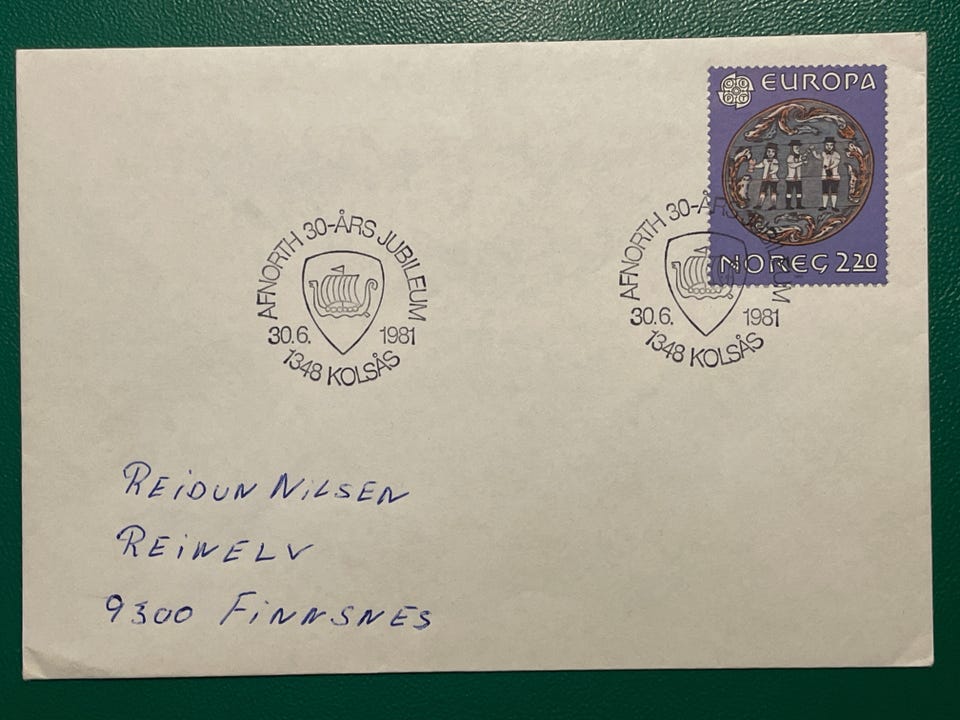 CEPT EUROPA
NOREG 2.20
AFNORTH 30-ÅRS JUBILEUM
30.6. 1981
1348 KOLSÅS
AFNORTH 30-ÅRS JUBILEUM
30.6. 1981
1348 KOLSÅS
REIDUN NILSEN
REINELV
9300 FINNSNES